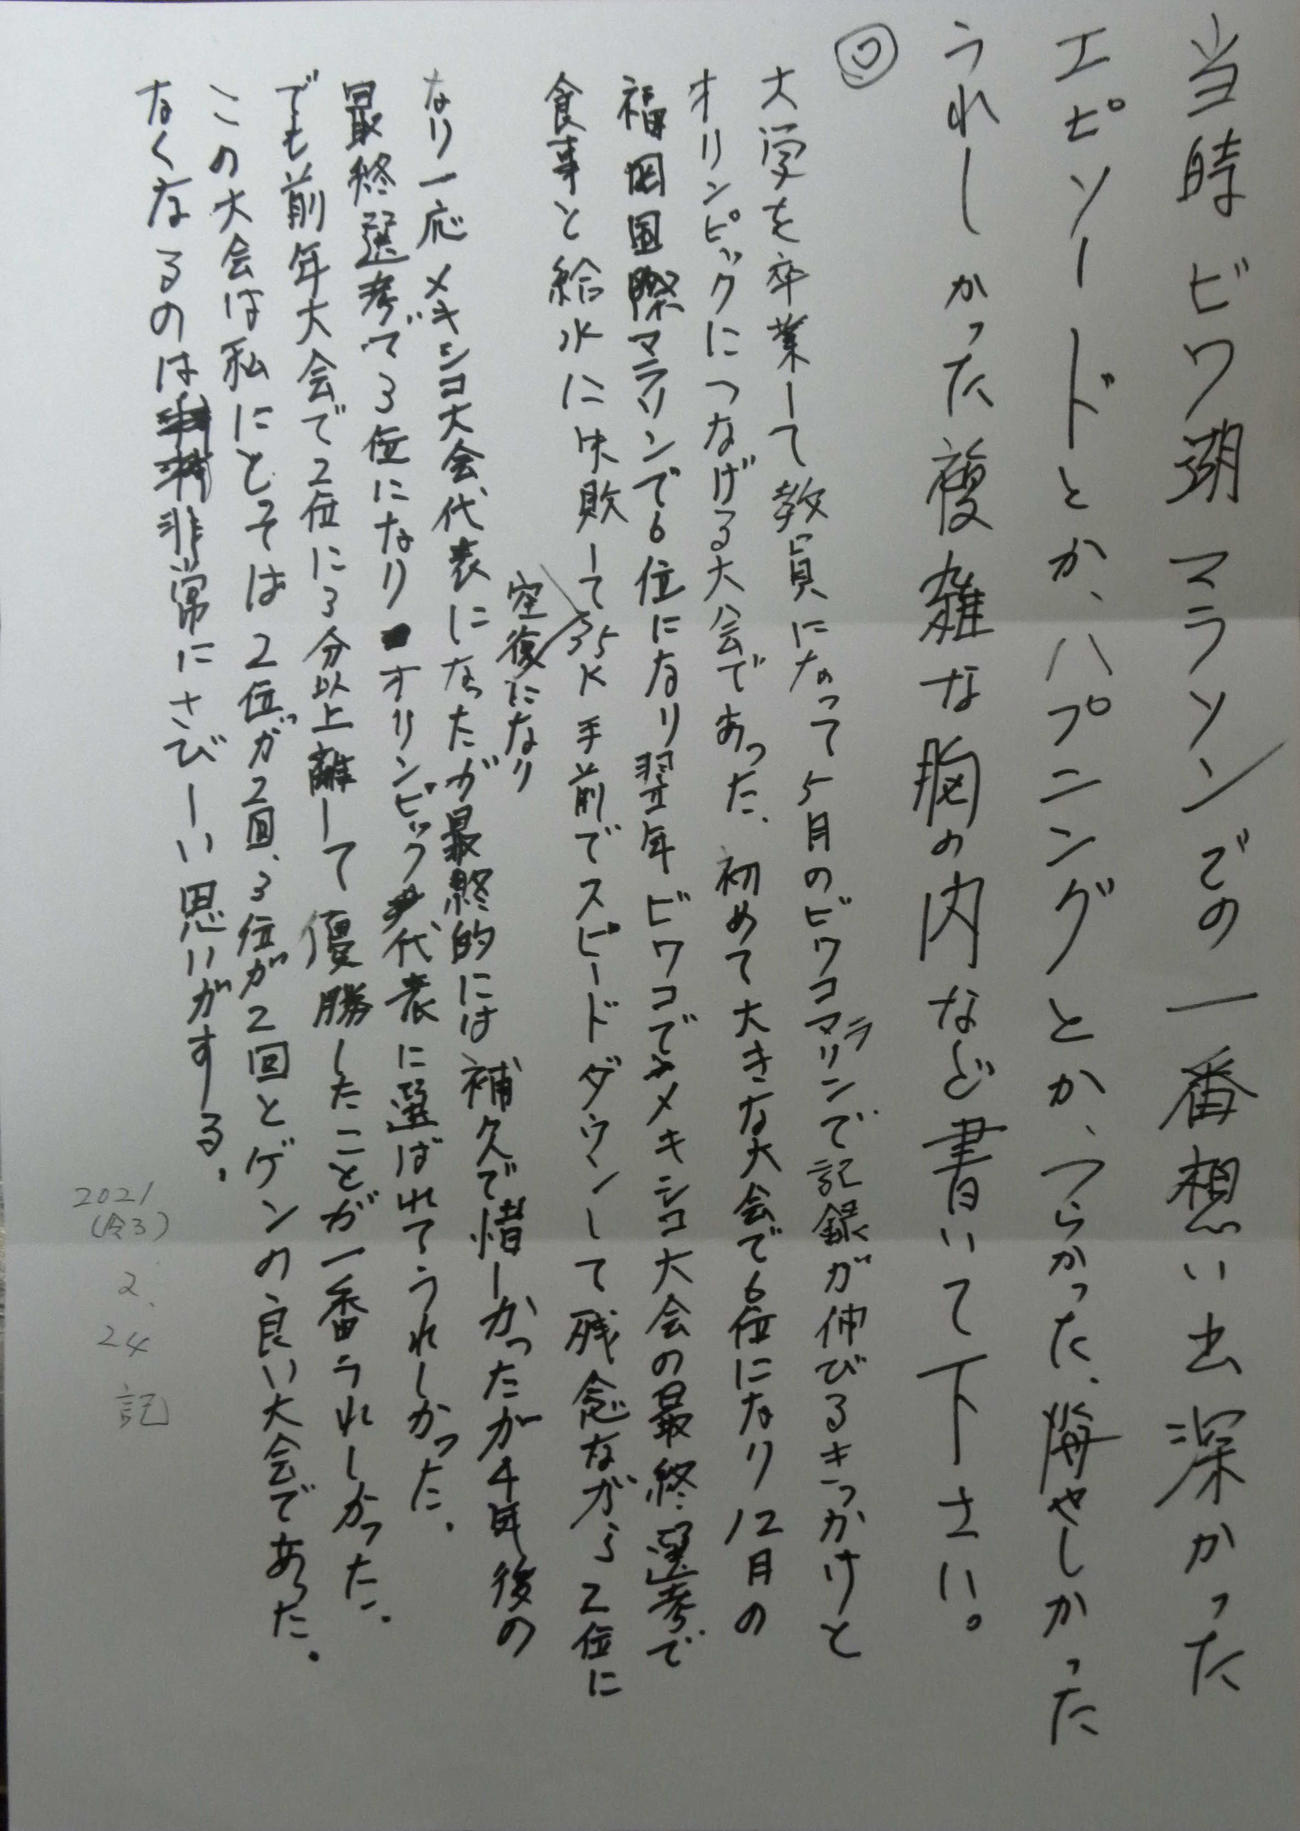 当時ビワ湖マラソンでの一番想い出深かった
エピソードとか、ハプニングとか、つらかった、悔やしかった
うれしかった複雑な胸の内など書いて下さい。
大学を卒業して教員になって5月のビワコマラソンで記録が伸びるきっかけと
オリンピックにつなげる大会であった、初めて大きな大会で6位になり12月の
福岡国際マラソンで6位になり翌年ビワコでメキシコ大会の最終選考で
食事と給水に失敗して35K手前でスピードダウンして残念ながら2位に
空復になり
なり一応メキシコ大会代表になったが最終的には補欠で惜しかったが4年後の
最終選考で3位になりオリンピック代表に選ばれてうれしかった.
でも前年大会で2位に3分以上離して優勝したことが一番うれしかった.
この大会は私にとっては2位が2回、3位が2回とゲンの良い大会であった.
なくなるのは非常にさびしい思いがする.
2021
(令3)
2.
24
記